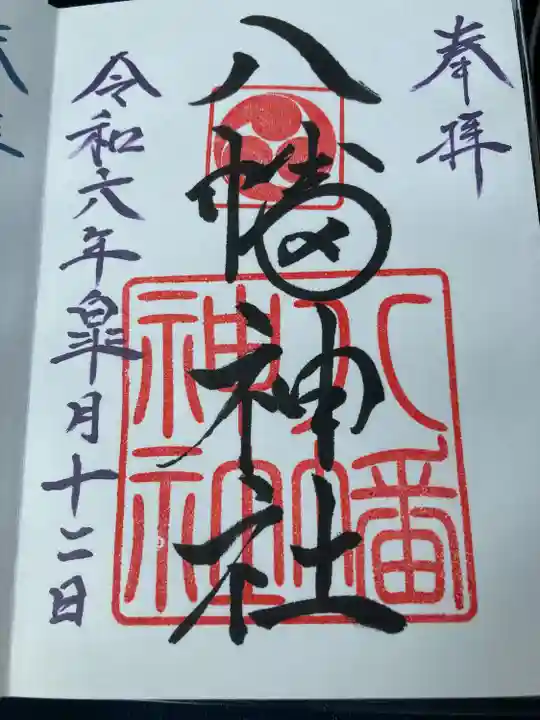 奉拝
八幡神社
八幡
神社
令和六年皐月十二日